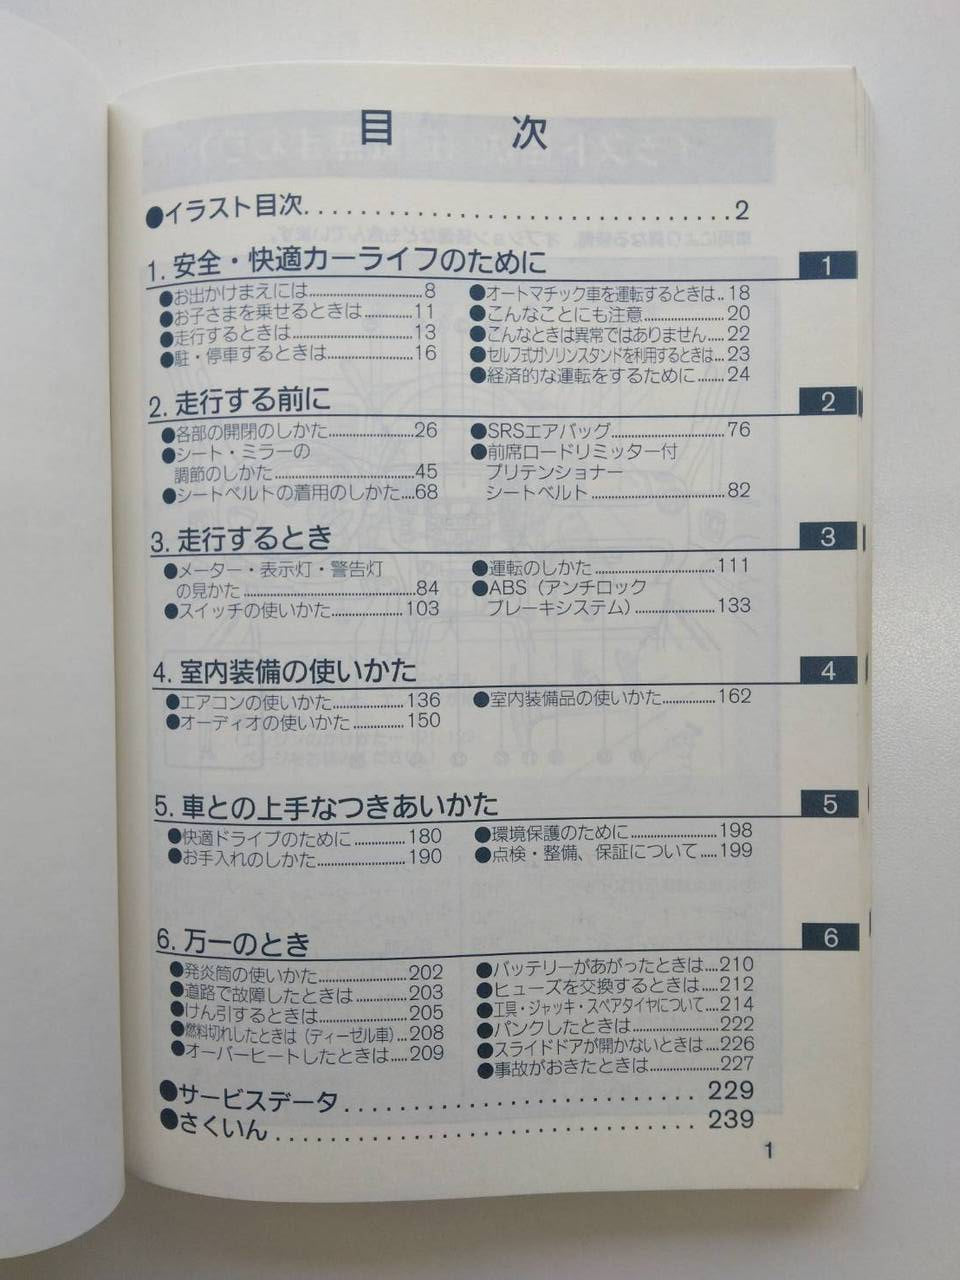 目 次
●イラスト目次..............................2
1. 安全・快適カーライフのために 1
●お出かけまえには..............................8
●お子さまを乗せるときは..............11
●走行するときは..............................13
●駐・停車するときは......................16
●オートマチック車を運転するときは..18
●こんなことにも注意......................20
●こんなときは異常ではありません....22
●セルフ式ガソリンスタンドを利用するときは...23
●経済的な運転をするために........24
2. 走行する前に 2
●各部の開閉のしかた......................26
●シート・ミラーの
調節のしかた..............................45
●シートベルトの着用のしかた....68
●SRSエアバッグ..............................76
●前席ロードリミッター付
プリテンショナー
シートベルト..............................82
3. 走行するとき 3
●メーター・表示灯・警告灯
の見かた......................................84
●スイッチの使いかた....................103
●運転のしかた..............................111
●ABS（アンチロック
ブレーキシステム）....................133
4. 室内装備の使いかた 4
●エアコンの使いかた....................136
●オーディオの使いかた..............150
●室内装備品の使いかた..............162
5. 車との上手なつきあいかた 5
●快適ドライブのために..............180
●お手入れのしかた......................190
●環境保護のために......................198
●点検・整備、保証について.....199
6. 万一のとき 6
●発炎筒の使いかた......................202
●道路で故障したときは..............203
●けん引するときは......................205
●燃料切れしたときは（ディーゼル車）...208
●オーバーヒートしたときは.....209
●バッテリーがあがったときは....210
●ヒューズを交換するときは.......212
●工具・ジャッキ・スペアタイヤについて....214
●パンクしたときは......................222
●スライドドアが開かないときは....226
●事故がおきたときは..................227
●サービスデータ..............................229
●さくいん..............................239
1